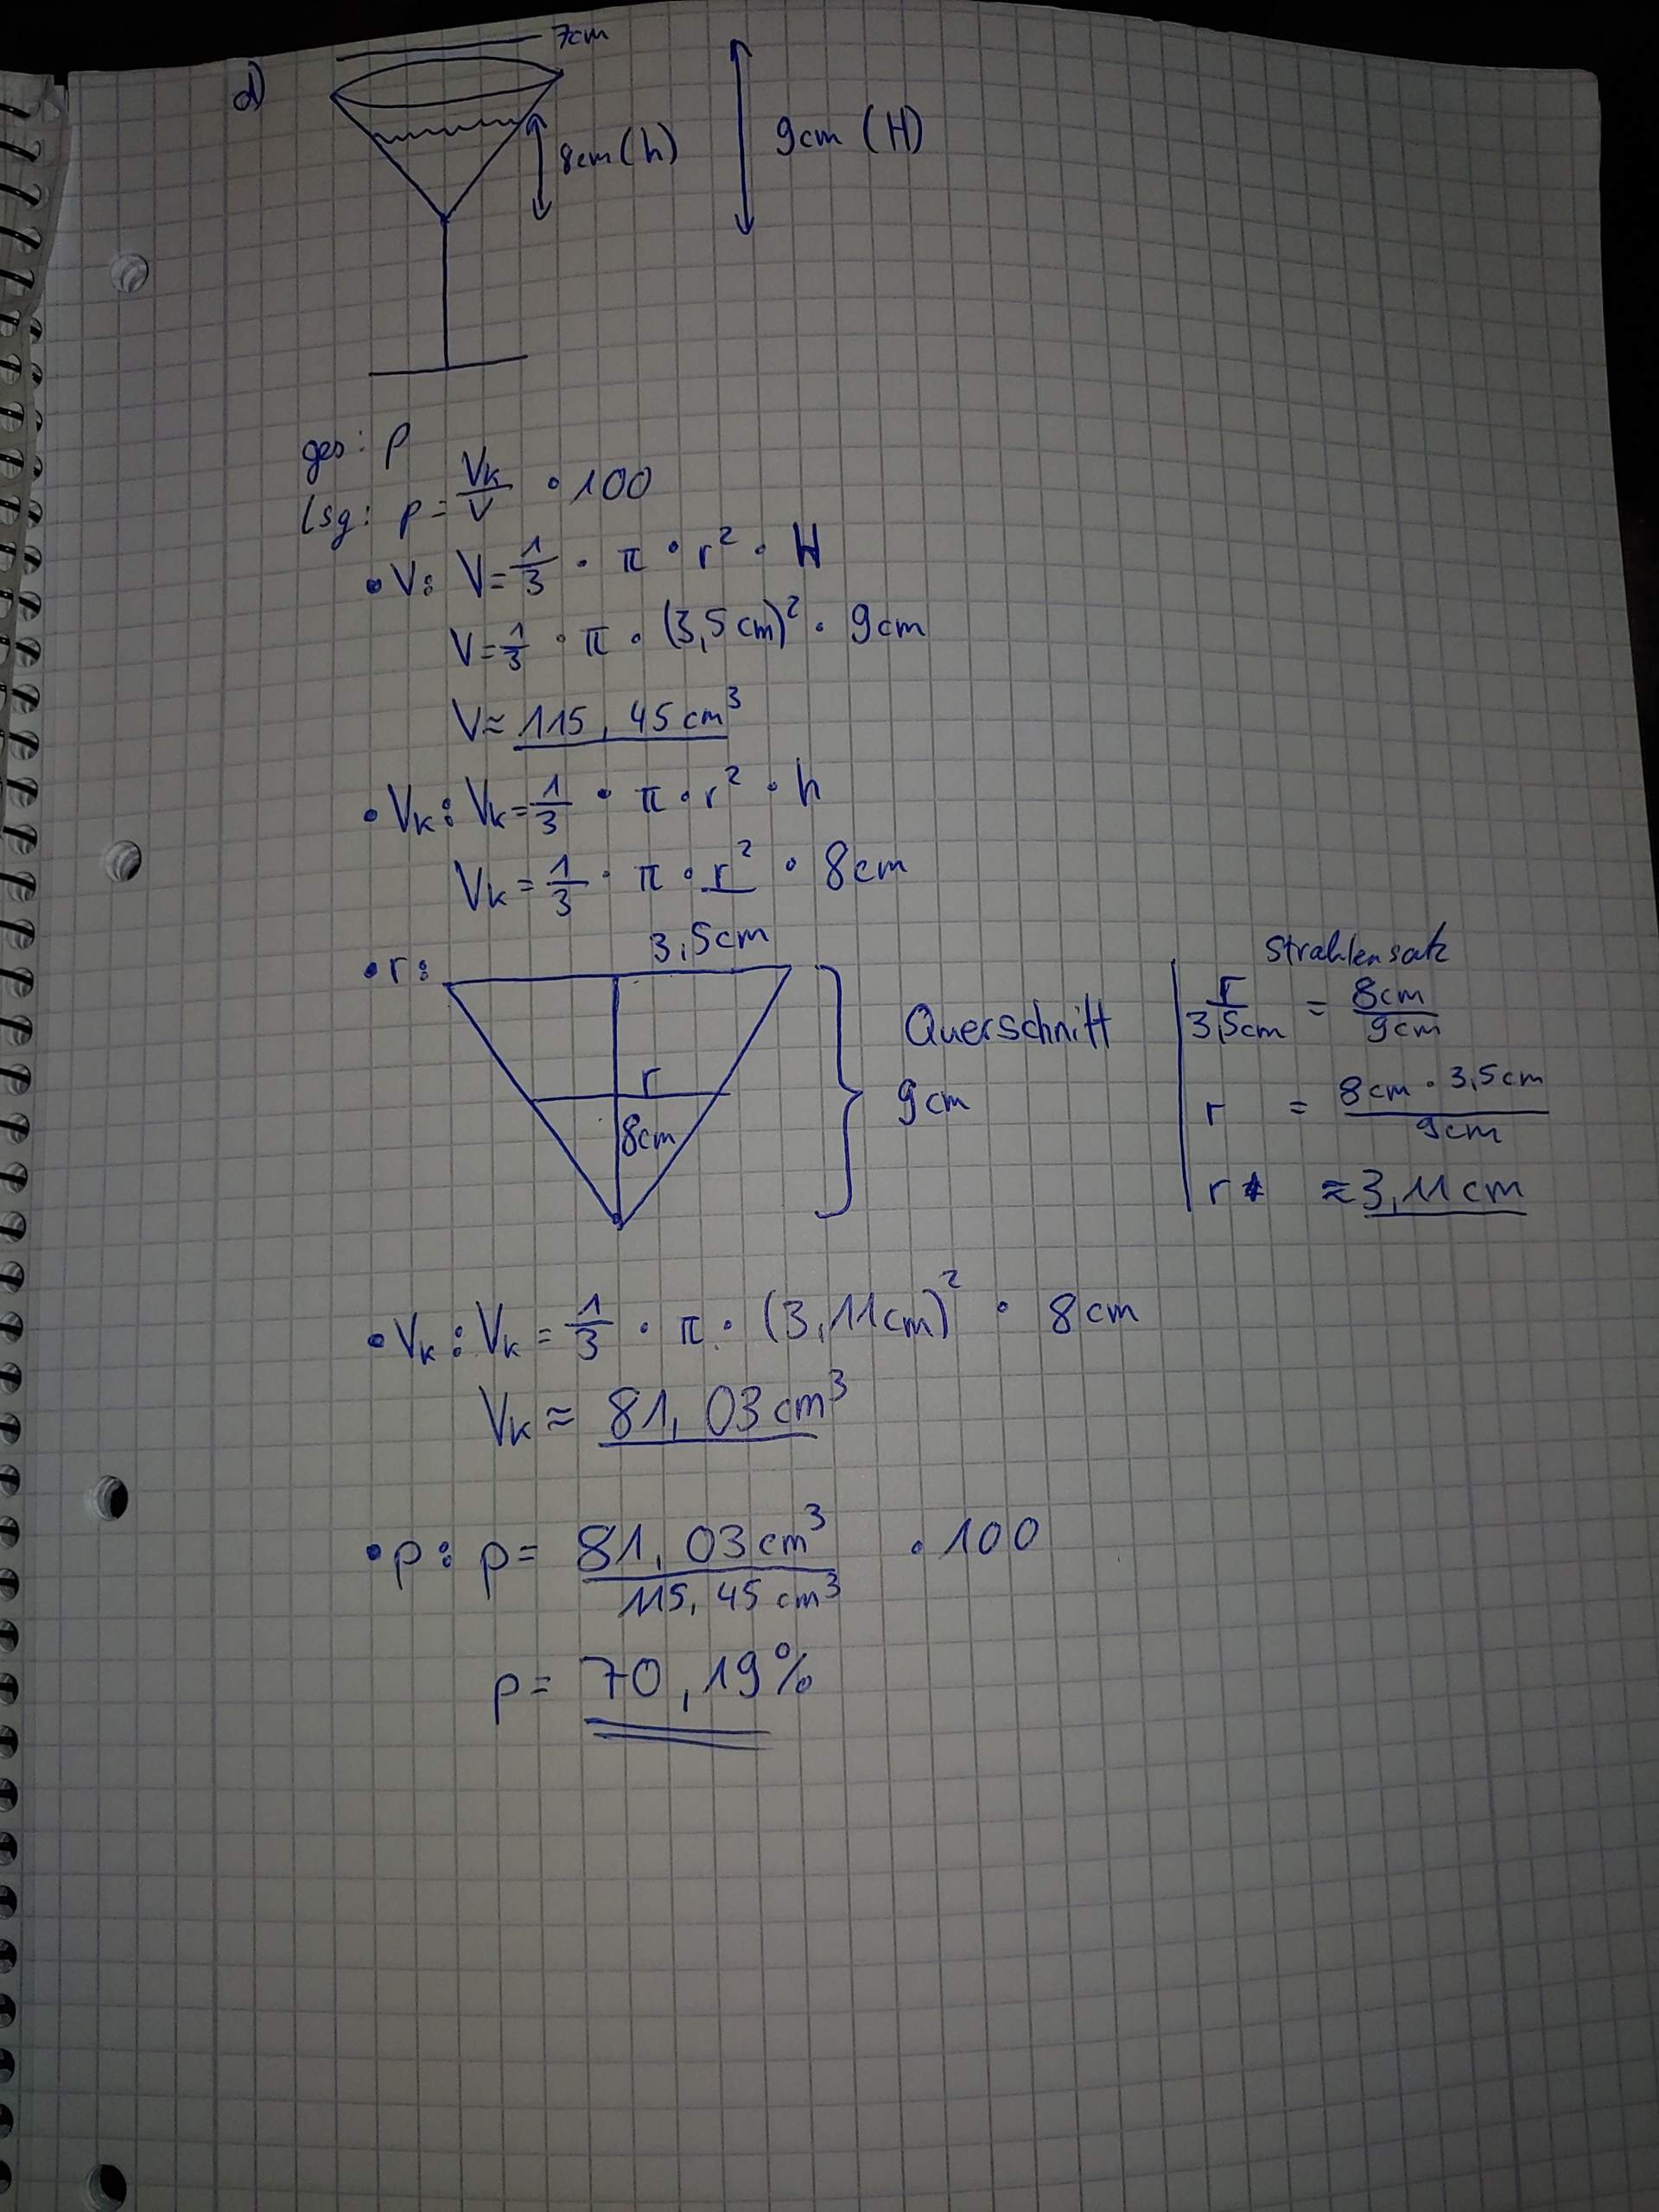 7cm
d)
8cm (h)
9cm (H)
ges: p
Lsg: p = Vk/V • 100
• V: V = 1/3 • π • r² • H
V = 1/3 • π • (3,5cm)² • 9cm
V ≈ 115,45cm³
• Vk: Vk = 1/3 • π • r² • h
Vk = 1/3 • π • r² • 8cm
• r:
3,5cm
r
8cm
Querschnitt
9cm
Strahlensatz
r/3,5cm = 8cm/9cm
r = 8cm • 3,5cm/9cm
r ≈ 3,11cm
• Vk: Vk = 1/3 • π • (3,11cm)² • 8cm
Vk ≈ 81,03cm³
• p: p = 81,03cm³/115,45cm³ • 100
p = 70,19%